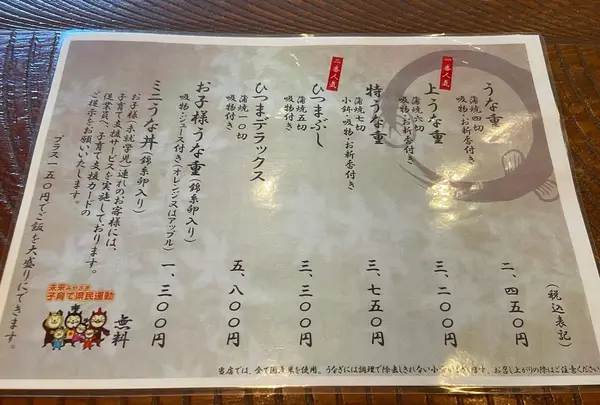 うな重
蒲焼四切
吸物・お新香付き
二、四五〇円
(税込表記)
一番人気
上うな重
蒲焼六切
吸物・お新香付き
三、二〇〇円
特うな重
蒲焼七切
小鉢・吸物・お新香付き
三、七五〇円
二番人気
ひつまぶし
蒲焼五切
吸物付き
三、三〇〇円
ひつまデラックス
蒲焼一〇切
吸物付き
五、八〇〇円
お子様うな重(錦糸卵入り)
吸物・ジュース付き(オレンジ又はアップル)
一、三〇〇円
ミニうな丼(錦糸卵入り)
お子様(未就学児)連れのお客様には、
子育て支援サービスを実施しております。
従業員へ、子育て支援カードの
ご提示をお願いいたします。
無料
プラス一五〇円でご飯を大盛りにできます。
未来みやざき
子育て県民運動
当店では、全て国産米を使用。うなぎには調理で除去しきれない小骨がございます。お召し上がりの際はご注意ください